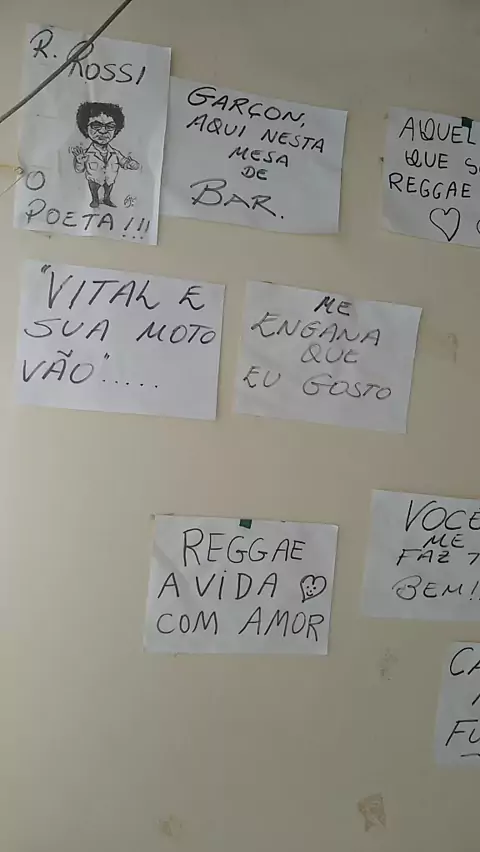 R. ROSSI
O
POETA!!!
GARÇON,
AQUI NESTA
MESA
DE
BAR.
QUE
REGGAE
"VITAL E
SUA MOTO
VÃO".....
ME
ENGANA
QUE
EU GOSTO
REGGAE
A VIDA
COM AMOR
VOCE
ME
FAZ
BEM!!